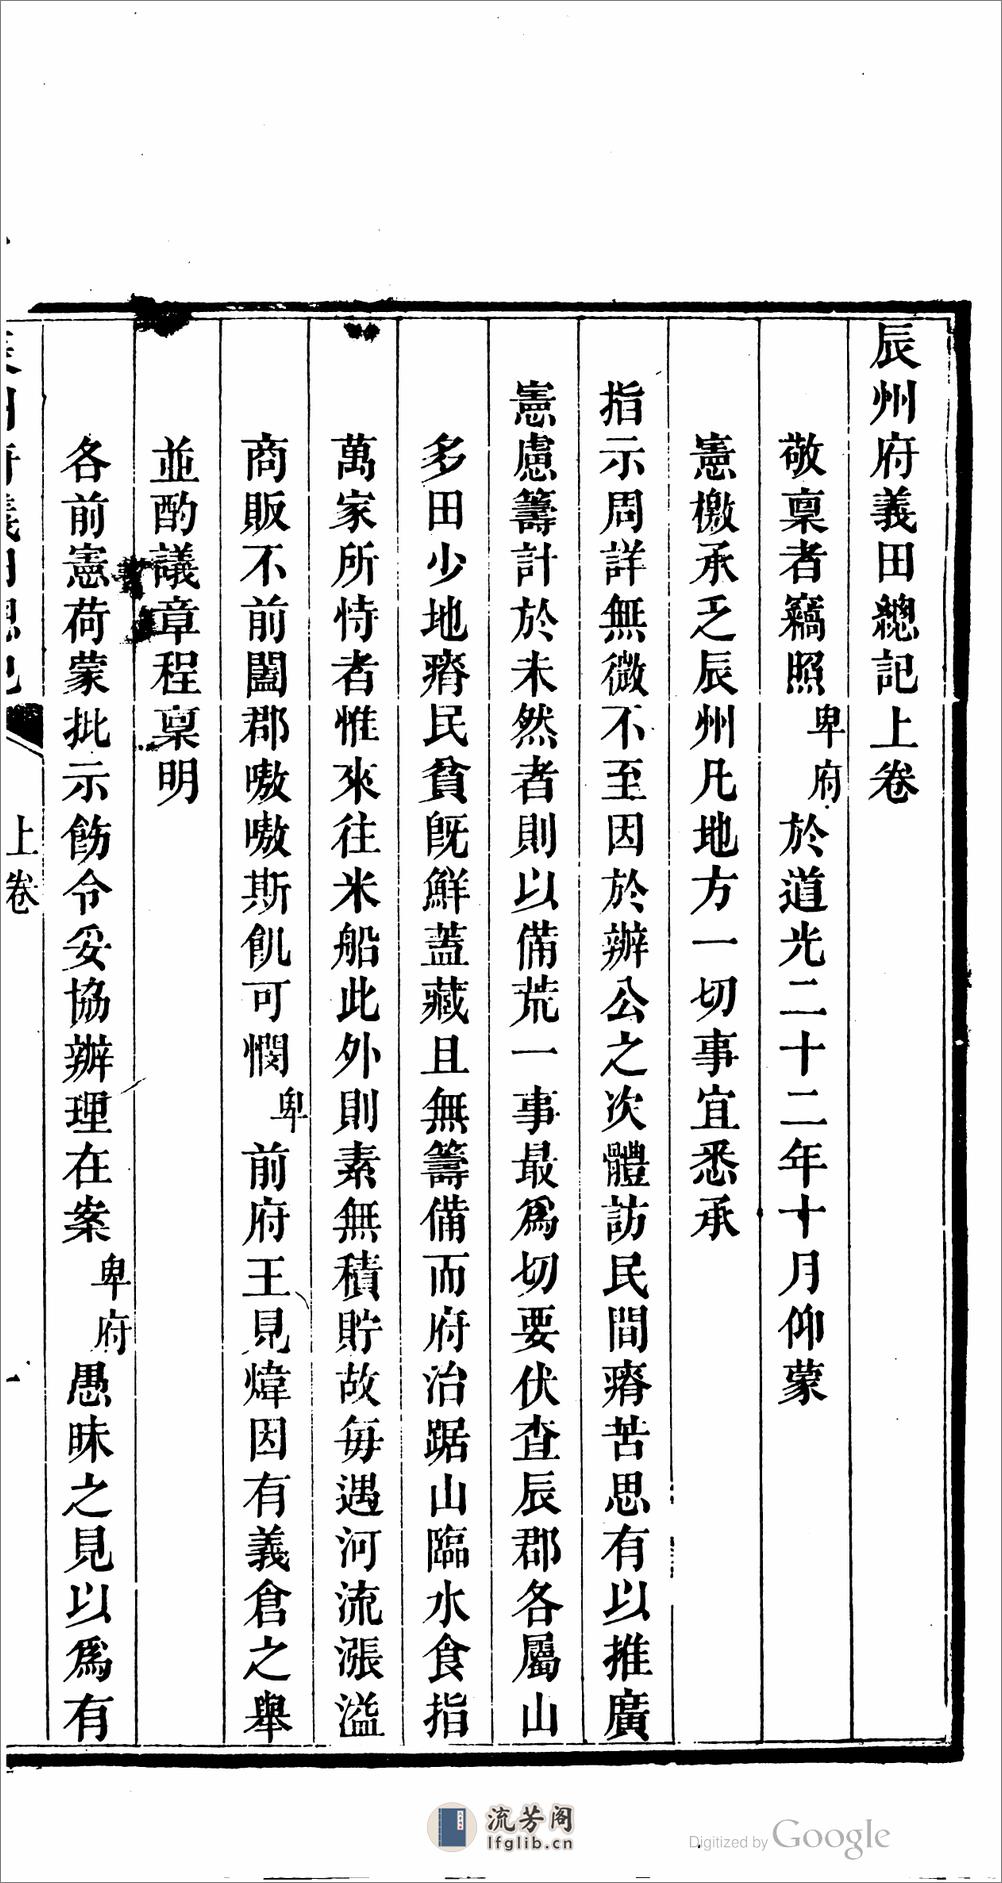 辰州府義田總記上卷
敬稟者竊照卑府於道光二十二年十月仰蒙
憲檄承乏辰州凡地方一切事宜悉承
指示周詳無微不至因於辦公之次體訪民間瘠苦思有以推廣
憲慮籌計於未然者則以備荒一事最爲切要伏查辰郡各屬山
多田少地瘠民貧既鮮蓋藏且無籌備而府治踞山臨水食指
萬家所恃者惟來往米船此外則素無積貯故每遇河流漲溢
商販不前闔郡嗷嗷斯飢可憫卑前府王見煒因有義倉之舉
並酌議章程稟明
各前憲荷蒙批示飭令妥協辦理在案卑府愚昧之見以爲有
辰州府義田總記 上卷 一
流芳阁
lfglib.cn
Digitized by Google